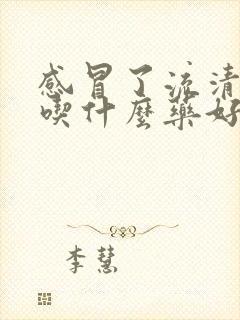 感冒了流清
喫什麼藥好
李慧